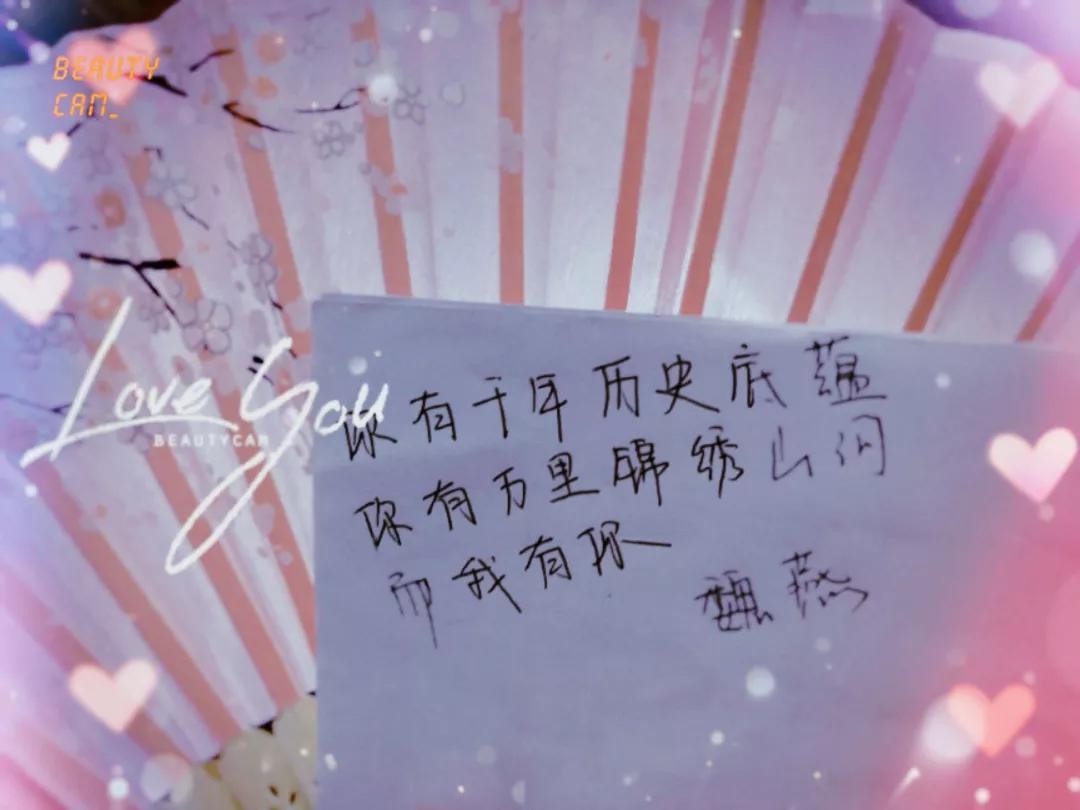 BEAUTY
CAM_
Love You
BEAUTYCAM
你有千年历史底蕴
你有万里锦绣山河
而我有你
魏燕